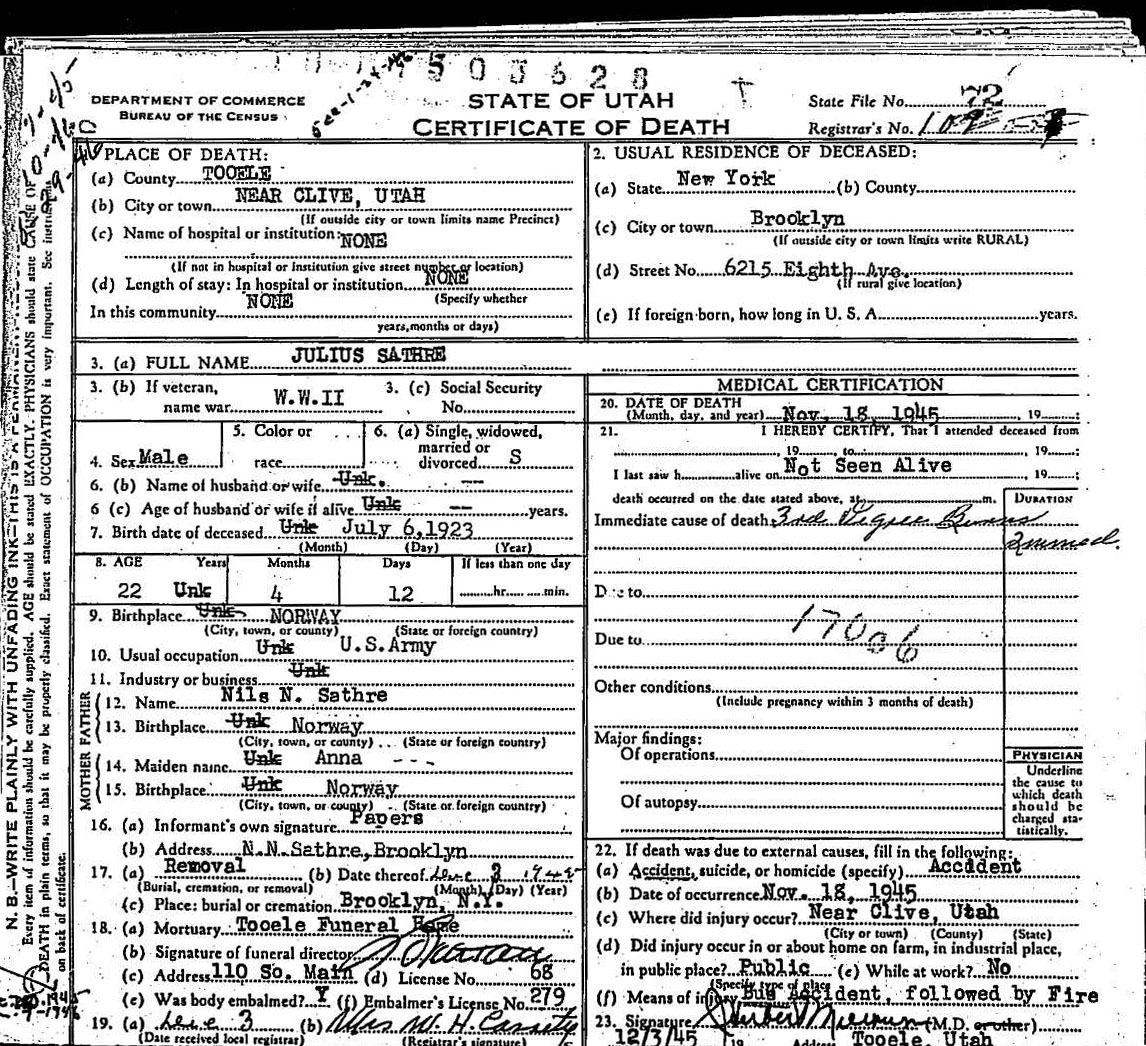 7503628
DEPARTMENT OF COMMERCE
BUREAU OF THE CENSUS
STATE OF UTAH
CERTIFICATE OF DEATH
State File No. 72
Registrar's No. 109
PLACE OF DEATH:
(a) County TOOELE
(b) City or town NEAR CLIVE, UTAH
(If outside city or town limits name Precinct)
(c) Name of hospital or institution: NONE
(If not in hospital or institution give street number or location)
(d) Length of stay: In hospital or institution NONE
(Specify whether
In this community NONE
years, months or days)
2. USUAL RESIDENCE OF DECEASED:
(a) State New York (b) County
(c) City or town Brooklyn
(If outside city or town limits write RURAL)
(d) Street No. 6215 Eighth Ave.
(If rural give location)
(e) If foreign born, how long in U. S. A. years.
3. (a) FULL NAME JULIUS SATHRE
3. (b) If veteran, name war W.W.II
3. (c) Social Security No.
4. Sex Male
5. Color or race
6. (a) Single, widowed, married or divorced S
6. (b) Name of husband or wife Unk. --
6 (c) Age of husband or wife if alive Unk -- years.
7. Birth date of deceased Unk July 6,1923
(Month) (Day) (Year)
8. AGE Years Months Days If less than one day
22 Unk 4 12 hr. min.
9. Birthplace Unk NORWAY
(City, town, or county) (State or foreign country)
10. Usual occupation Unk U.S.Army
11. Industry or business Unk
FATHER
12. Name Nils N. Sathre
13. Birthplace Unk Norway
(City, town, or county) (State or foreign country)
MOTHER
14. Maiden name Unk Anna ---
15. Birthplace Unk Norway
(City, town, or county) (State or foreign country)
16. (a) Informant's own signature Papers
(b) Address N.N.Sathre,Brooklyn
17. (a) Removal (b) Date thereof Dec 3 1945
(Burial, cremation, or removal) (Month) (Day) (Year)
(c) Place: burial or cremation Brooklyn, N.Y.
18. (a) Mortuary Tooele Funeral Home
(b) Signature of funeral director
(c) Address 110 So. Main (d) License No. 68
(e) Was body embalmed? Y (f) Embalmer's License No. 279
19. (a) Dec 3 (b) Mrs W. H. Cassity
(Date received local registrar) (Registrar's signature)
MEDICAL CERTIFICATION
20. DATE OF DEATH
(Month, day, and year) Nov. 18, 1945, 19 :
21. I HEREBY CERTIFY, That I attended deceased from
, 19 to , 19 :
I last saw h alive on Not Seen Alive , 19 :
death occurred on the date stated above, at m.
DURATION
Immediate cause of death 3rd Degree Burns
Immed.
Due to
17006
Due to
Other conditions
(Include pregnancy within 3 months of death)
Major findings:
Of operations
Of autopsy
PHYSICIAN
Underline
the cause to
which death
should be
charged sta-
tistically.
22. If death was due to external causes, fill in the following:
(a) Accident, suicide, or homicide (specify) Accident
(b) Date of occurrence Nov. 18, 1945
(c) Where did injury occur? Near Clive, Utah
(City or town) (County) (State)
(d) Did injury occur in or about home on farm, in industrial place,
in public place? Public (e) While at work? No
(Specify type of place
(f) Means of injury Bus Accident, followed by Fire
23. Signature (M.D. or other)
12/3/45 19 Address Tooele, Utah
N. B.—WRITE PLAINLY WITH UNFADING INK—THIS IS A PERMANENT
Every item of information should be carefully supplied. AGE should be stated EXACTLY. PHYSICIANS should state CAUSE OF
DEATH in plain terms, so that it may be properly classified. Exact statement of OCCUPATION is very important. See instructions
on back of certificate.